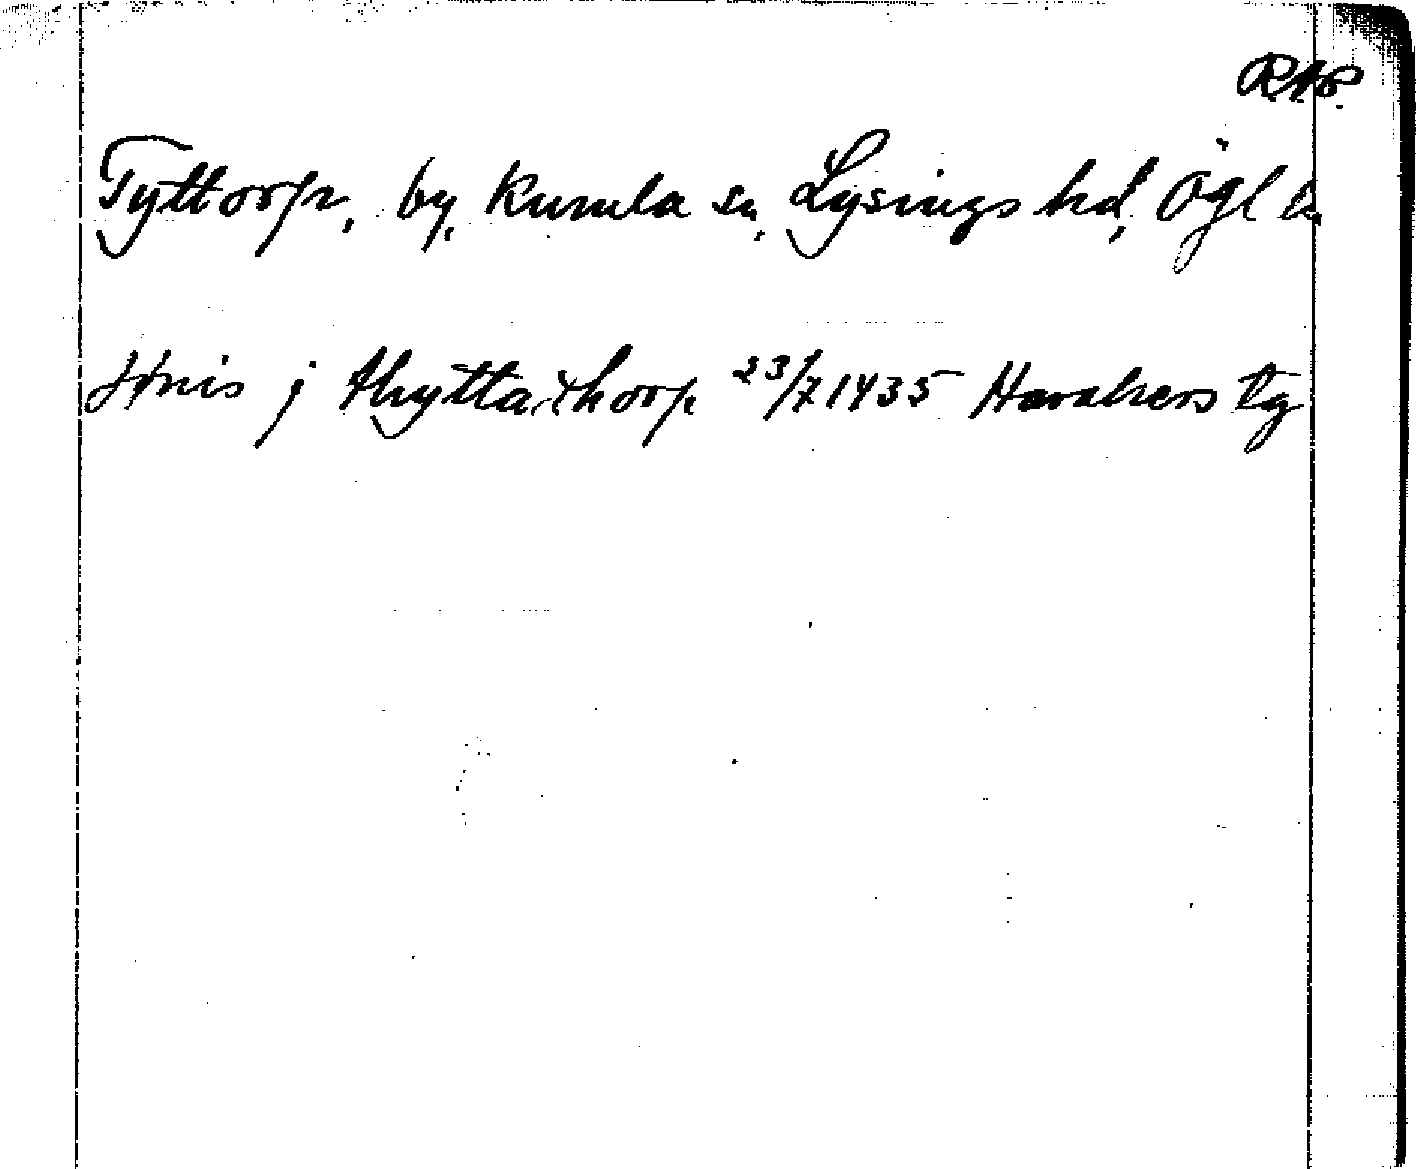 RAP.
Tyttorp, by, Kumla sn, Lysings hd, Ögl l.
Jönis j thyttaxthorp 23/7 1435 Havakers tg